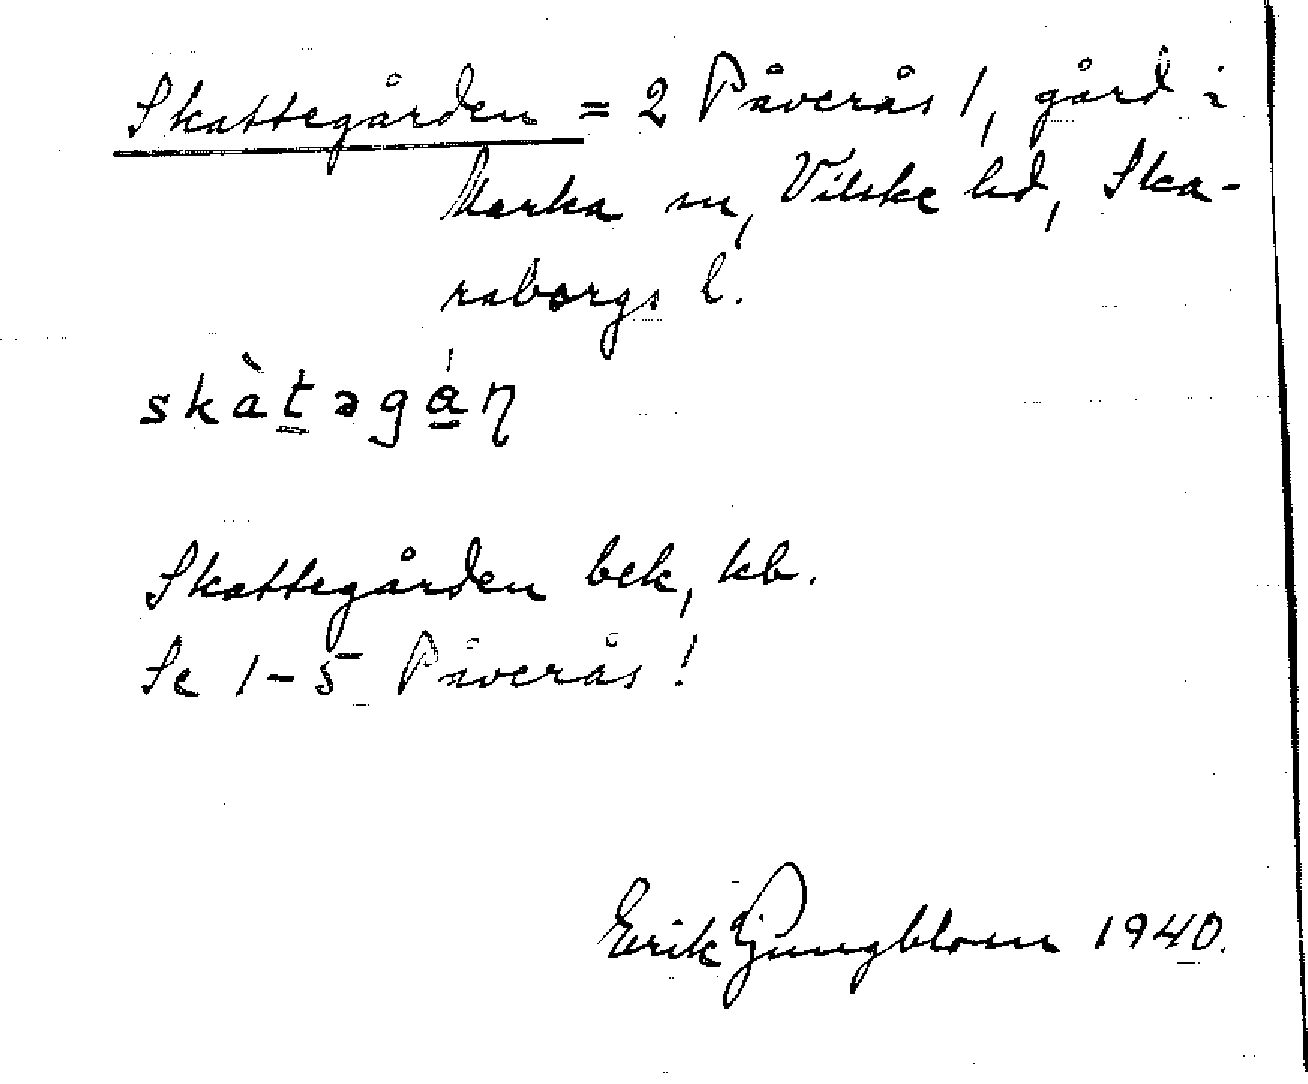 Skattegården = 2 Påverås 1, gård i
Marka sn, Vilske hd, Ska-
raborgs l.
skàt̲əgá̲ɳ
Skattegården bek, kb.
Se 1-5 Påverås!
Erik Ljungblom 1940.